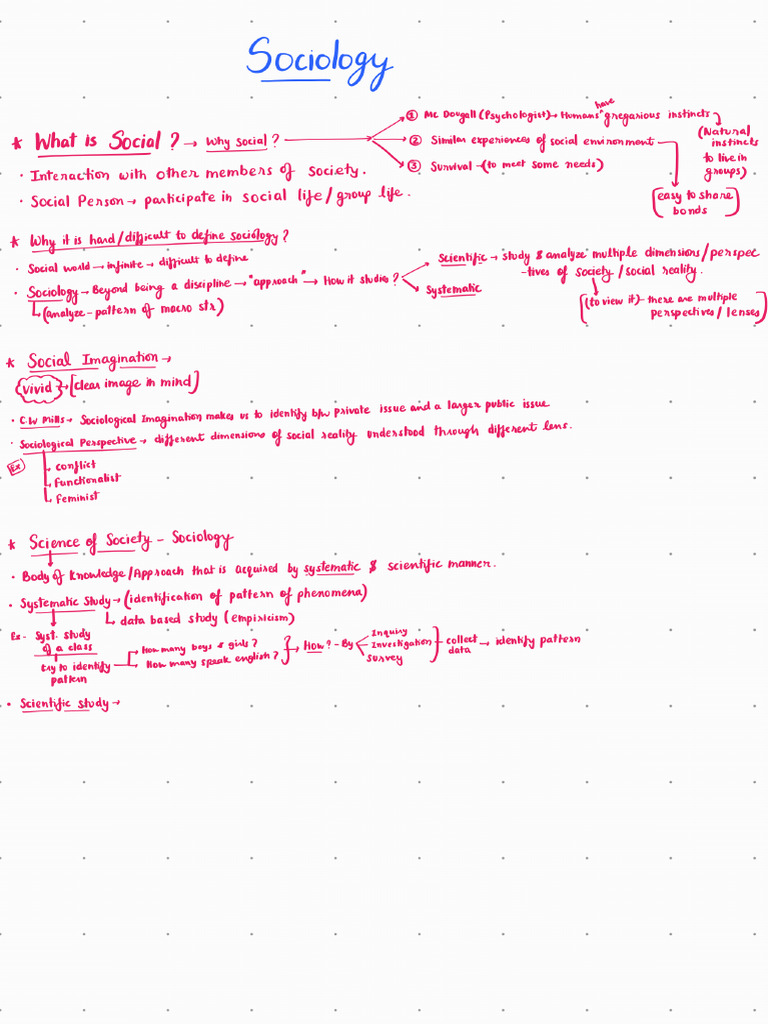 Sociology
* What is Social ? → Why Social ?
① Mc Dougall (Psychologist) → Humans have gregarious instincts
(Natural instincts to live in groups)
② Similar experiences of social environment
[easy to share bonds]
③ Survival → (to meet some needs)
· Interaction with other members of society.
· Social Person → participate in social life / group life.
* Why it is hard/difficult to define sociology ?
· Social world → infinite → difficult to define
· Sociology → Beyond being a discipline → "approach" → How it studies ?
↳ (analyze - pattern of macro str)
Scientific → study & analyze multiple dimensions / perspec
-tives of society / social reality.
[(to view it) - there are multiple
perspectives / lenses]
Systematic
* Social Imagination →
vivid → [clear image in mind]
· C.W Mills → Sociological Imagination makes us to identify b/w private issue and a larger public issue
· Sociological Perspective → different dimensions of social reality understood through different lens.
Ex
→ conflict
→ functionalist
→ feminist
* Science of Society - Sociology
· Body of Knowledge / Approach that is acquired by systematic & scientific manner.
· Systematic Study → (identification of pattern of phenomena)
↳ data based study (empiricism)
Ex - Syst. study
of a class
try to identify
pattern
How many boys & girls ?
How many speak english ?
→ How ? - By
Inquiry
Investigation
Survey
collect
data
→ identify pattern
· Scientific study →